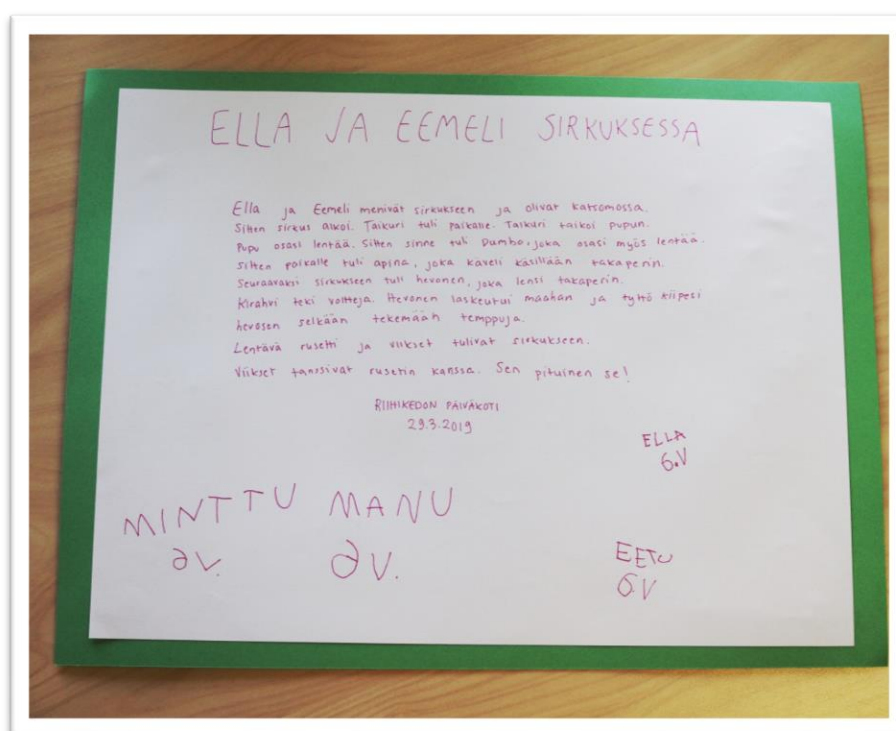 ELLA JA EEMELI SIRKUKSESSA
Ella ja Eemeli menivät sirkukseen ja olivat katsomossa.
Sitten sirkus alkoi. Taikuri tuli paikalle. Taikuri taikoi pupun.
Pupu osasi lentää. Sitten sinne tuli Dumbo, joka osasi myös lentää.
Sitten paikalle tuli apina, joka käveli käsillään takaperin.
Seuraavaksi sirkukseen tuli hevonen, joka lensi takaperin.
Kirahvi teki voltteja. Hevonen laskeutui maahan ja tyttö kiipesi
hevosen selkään tekemään temppuja.
Lentävä rusetti ja viikset tulivat sirkukseen.
Viikset tanssivat rusetin kanssa. Sen pituinen se!
RIIHIKEDON PÄIVÄKOTI
29.3.2019
ELLA
6.V
MINTTU MANU
6V. 6V.
EETU
6.V